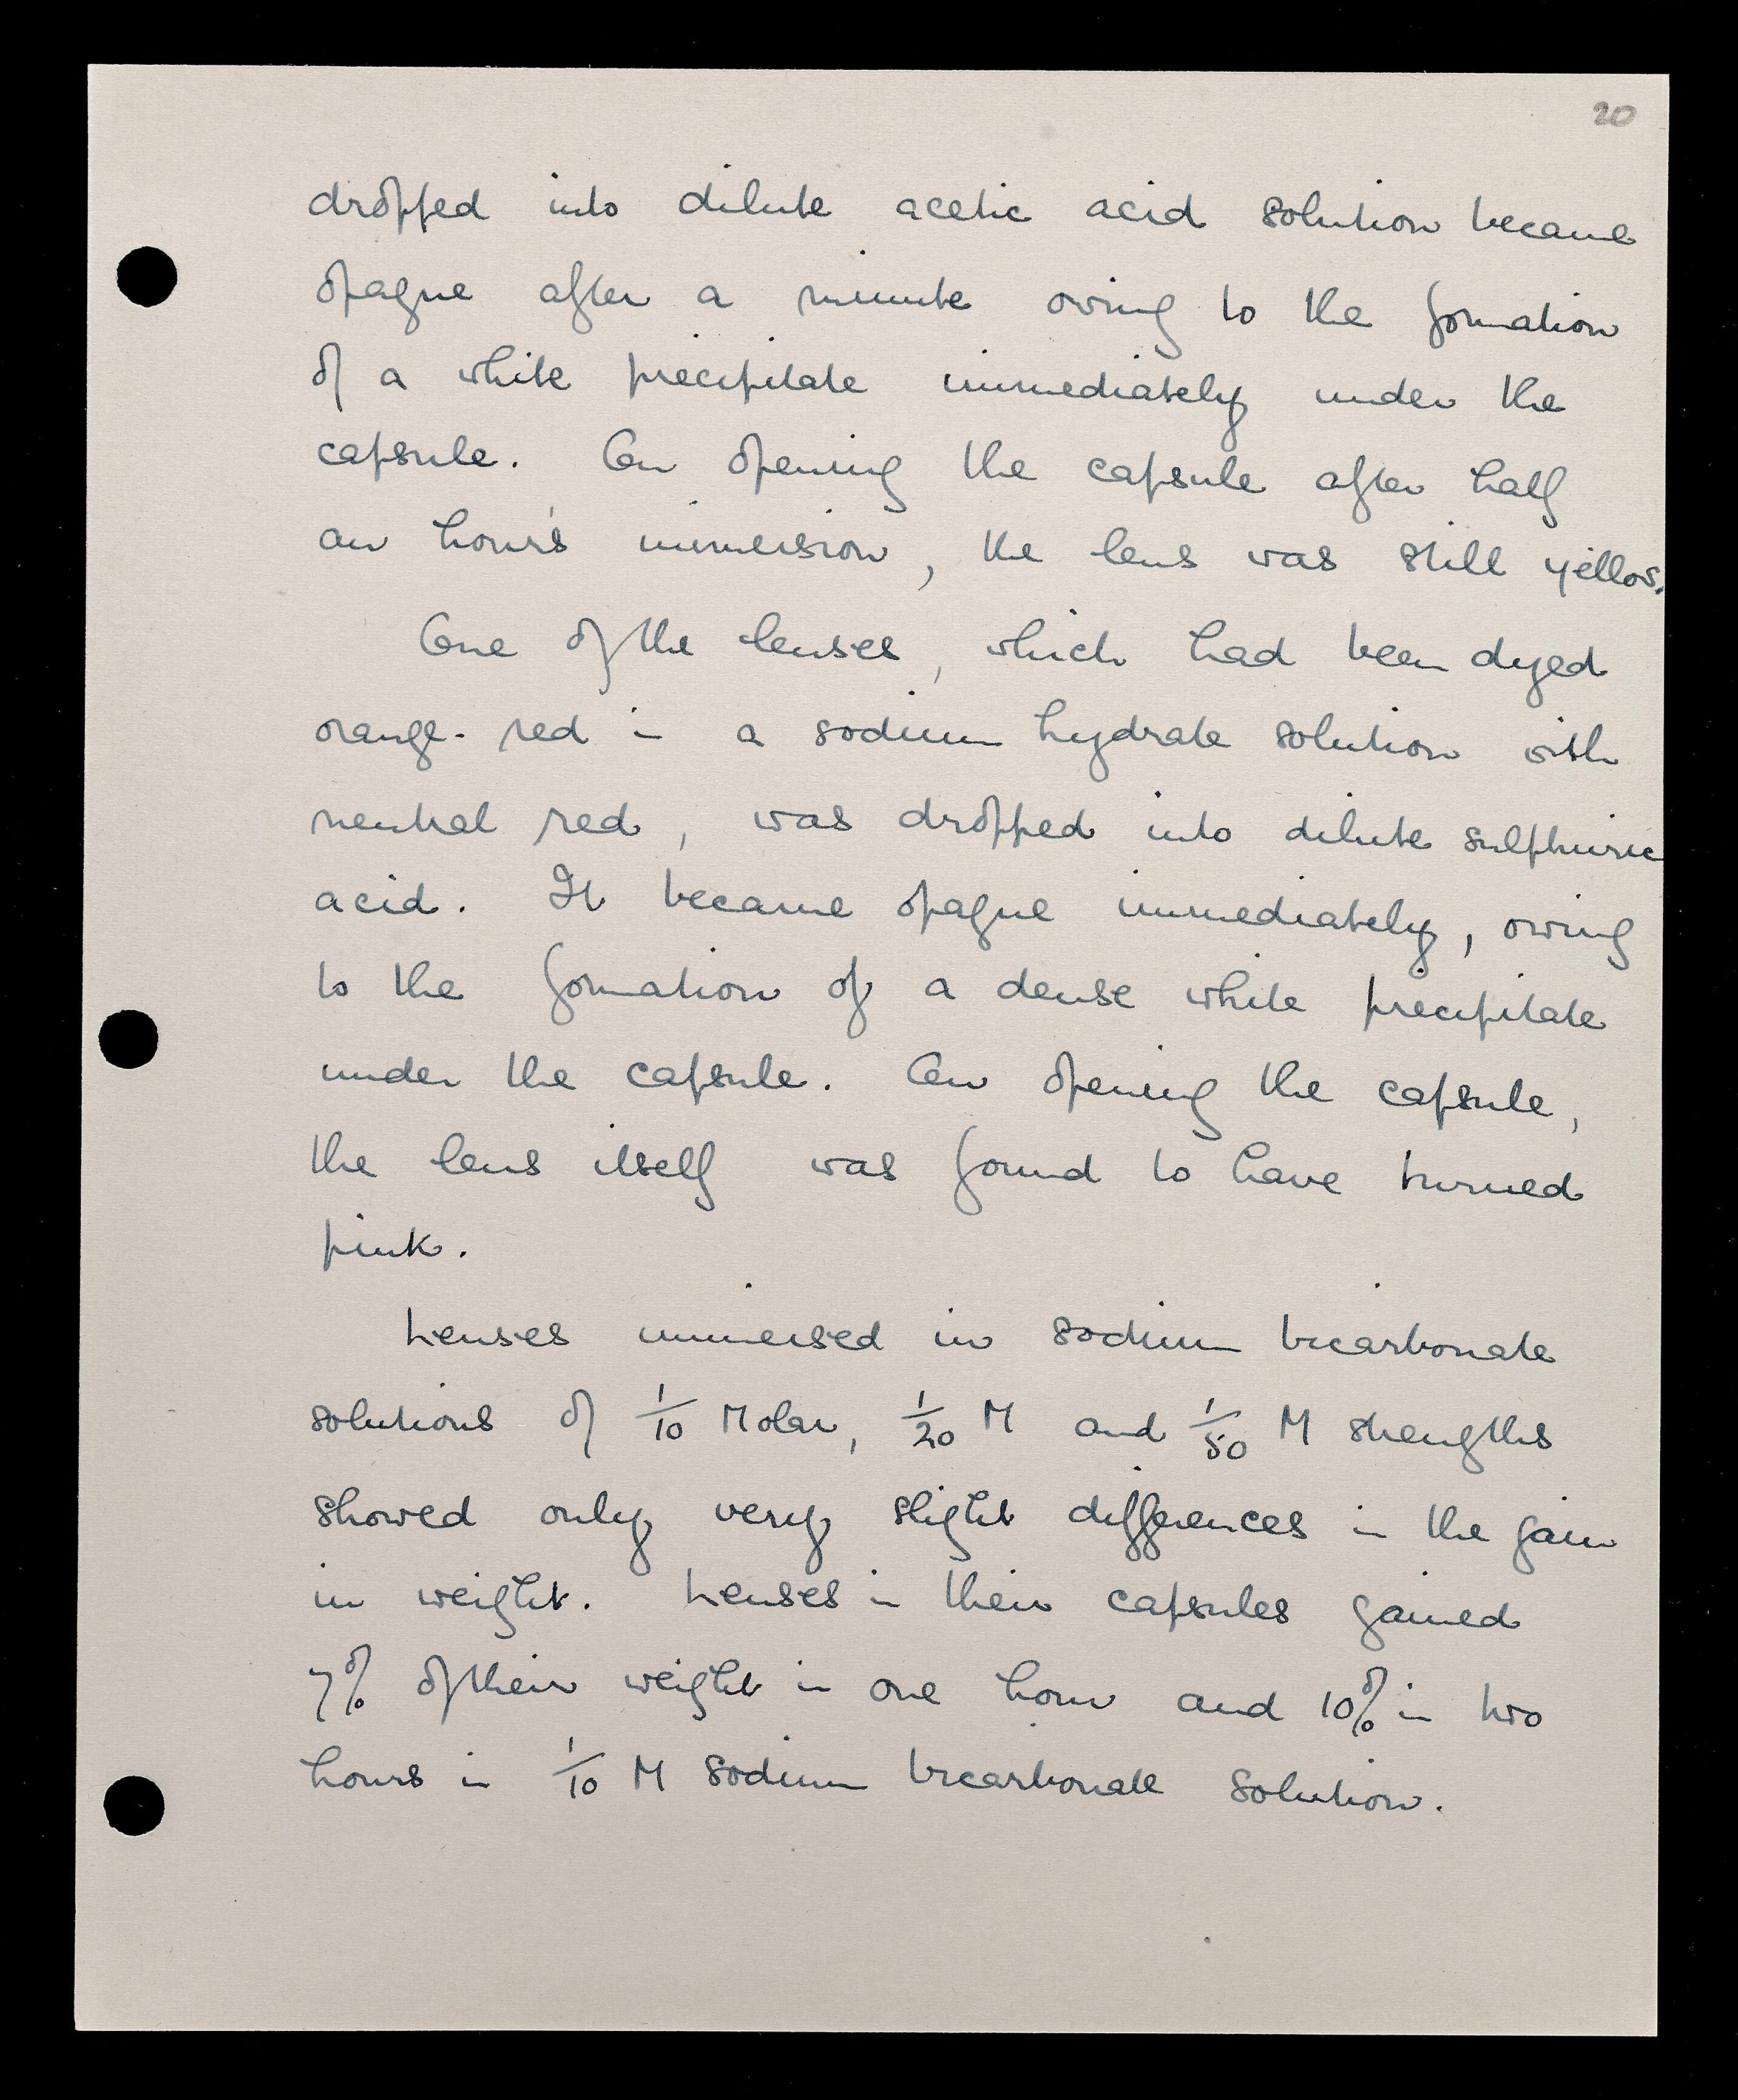 20
dropped into dilute acetic acid solution became
opaque after a minute owing to the formation
of a white precipitate immediately under the
capsule. On opening the capsule after half
an hour's immersion, the lens was still yellow.
One of the lenses, which had been dyed
orange-red in a sodium hydrate solution with
neutral red, was dropped into dilute sulphuric
acid. It became opaque immediately, owing
to the formation of a dense white precipitate
under the capsule. On opening the capsule,
the lens itself was found to have turned
pink.
Lenses immersed in sodium bicarbonate
solutions of 1/10 Molar, 1/20 M and 1/50 M strengths
showed only very slight differences in the gain
in weight. Lenses in their capsules gained
7% of their weight in one hour and 10% in two
hours in 1/10 M sodium bicarbonate solution.